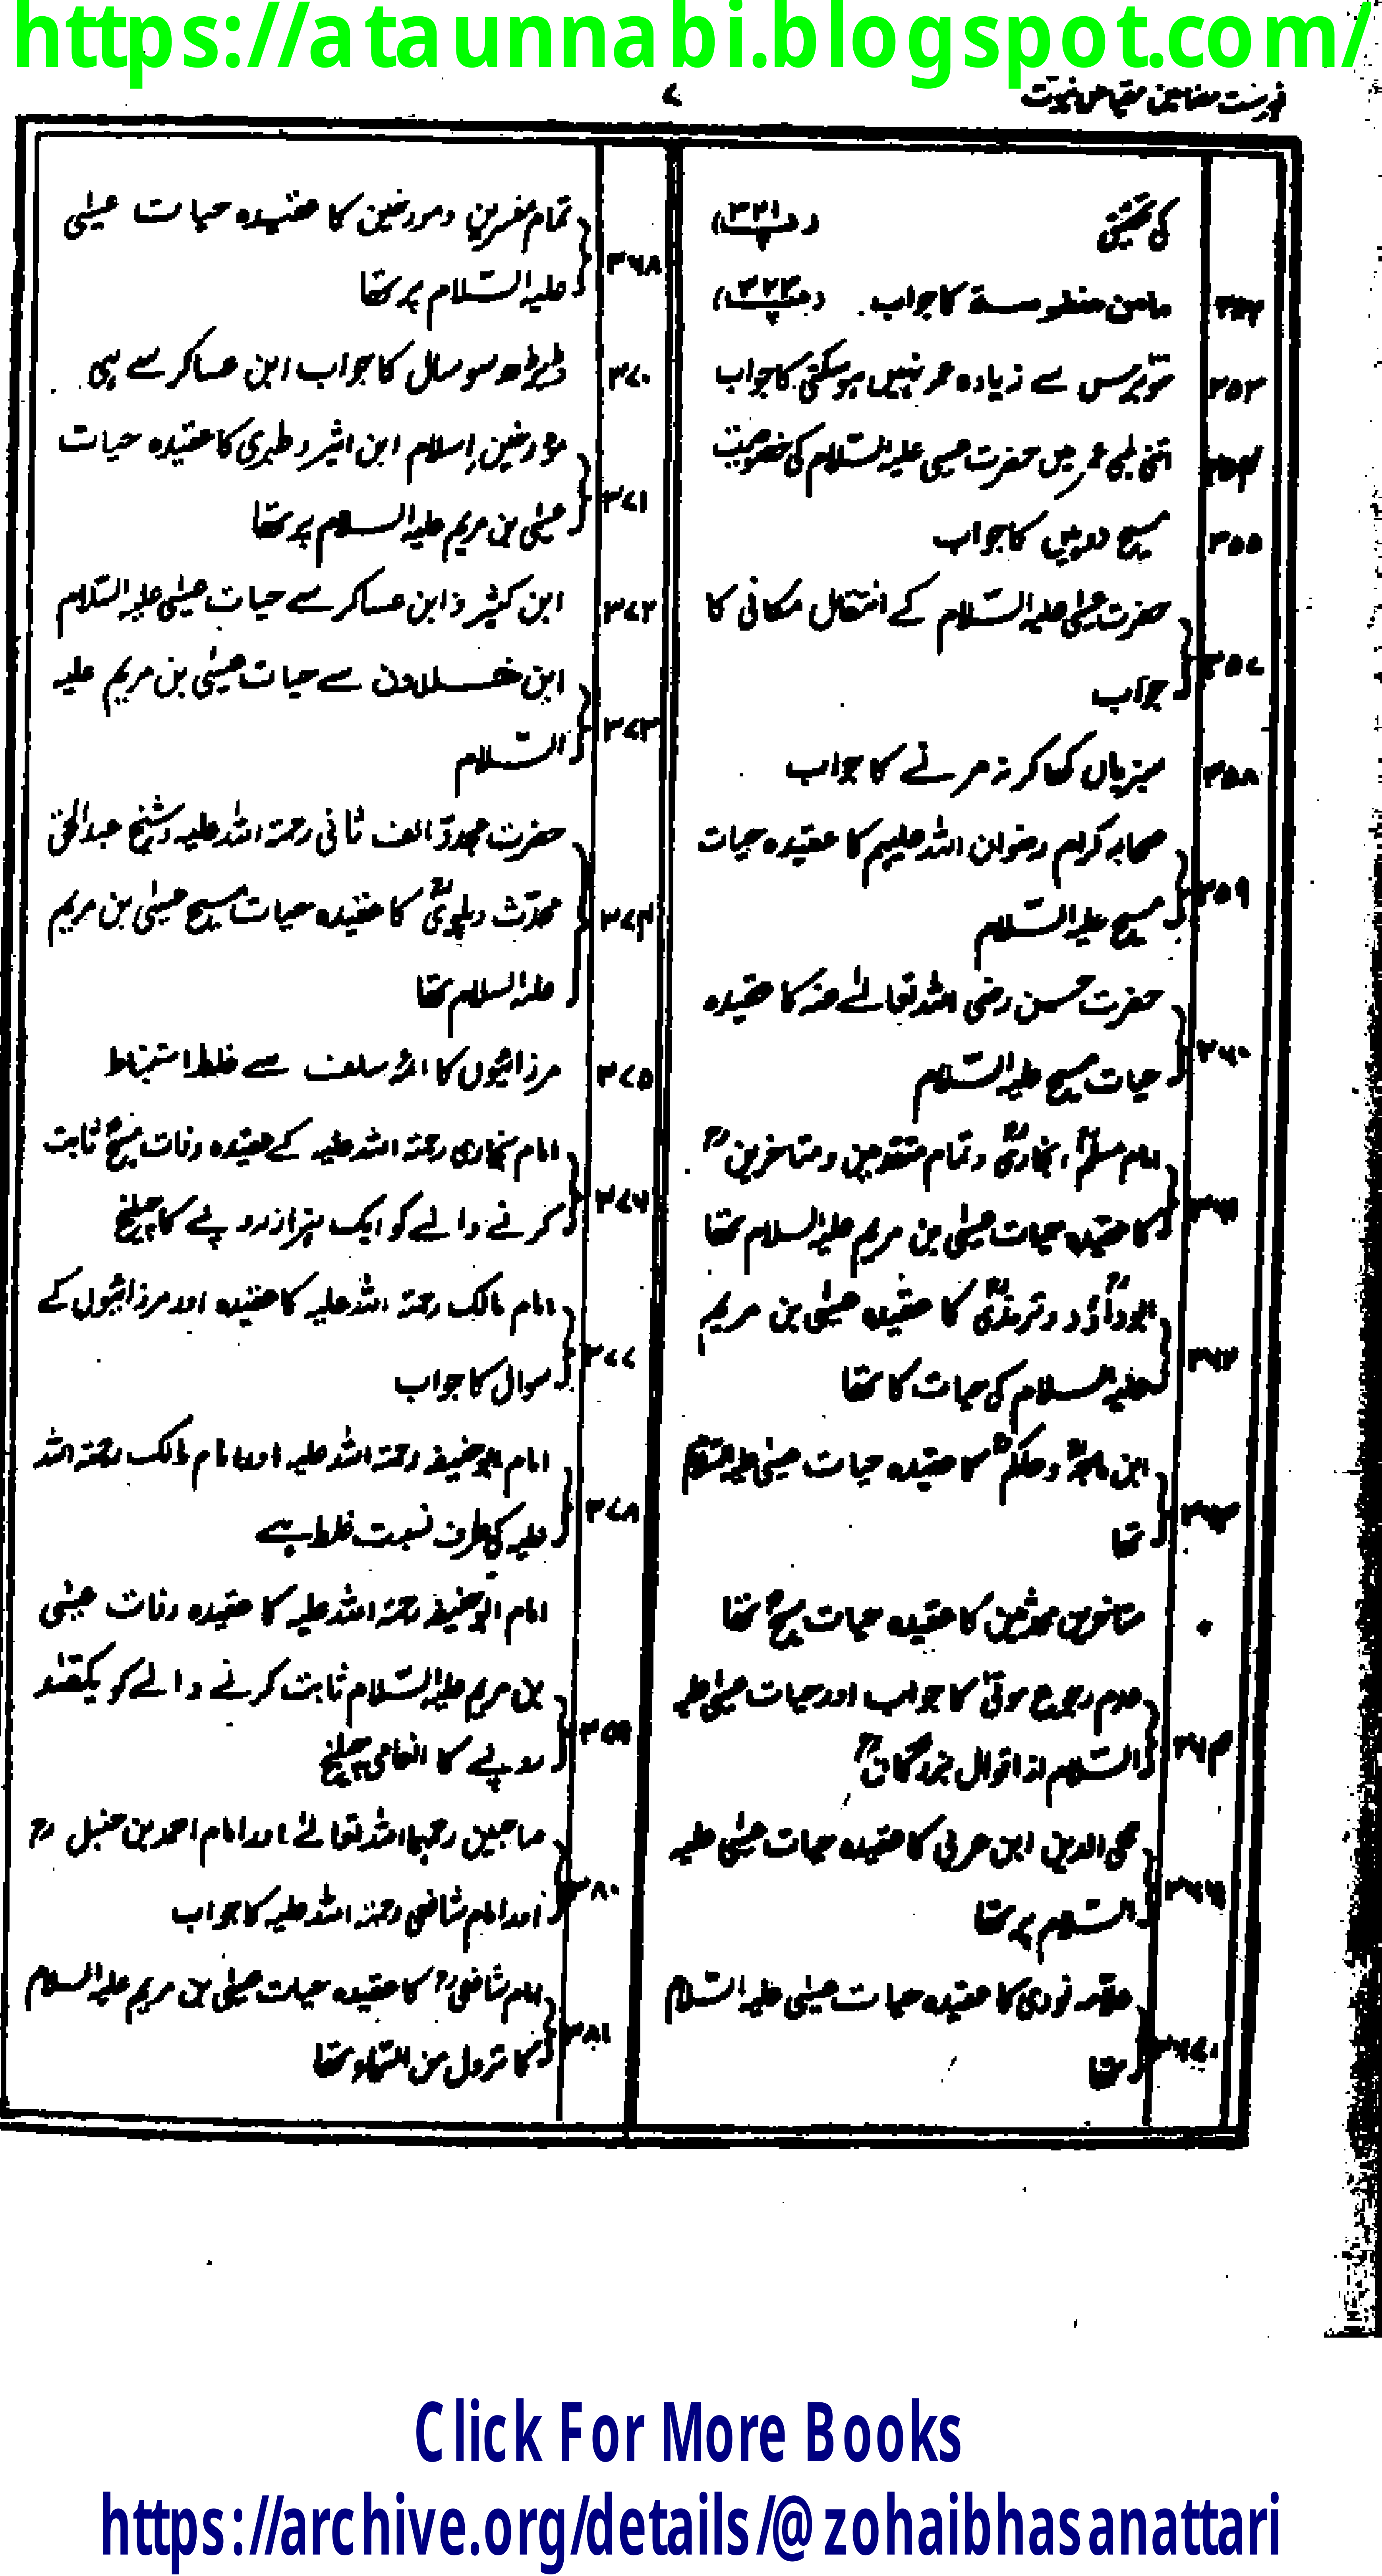 https://ataunnabi.blogspot.com/
فہرست مضامین مقیاس نبوت
۷
کی تحقیق (ص۳۲۱)
مامن منفوسة کا جواب (ص۳۲۲)
۳۵۳ سو برس سے زیادہ عمر نہیں ہو سکتی کا جواب
اتنی لمبی عمر میں حضرت عیسیٰ علیہ السّلام کی خصوصیت
۳۵۵ مسیح دو ہیں کا جواب
۳۵۷ حضرت عیسیٰ علیہ السّلام کے انتقال مکانی کا
جواب
۳۵۸ سبزیاں کھا کر نہ مرنے کا جواب
۳۵۹ صحابہ کرام رضوان اللہ علیہم کا عقیدہ حیات
مسیح علیہ السّلام
۳۶۰ حضرت حسن رضی اللہ تعالےٰ عنہ کا عقیدہ
حیات مسیح علیہ السّلام
۳۶۱ امام مسلمؒ ، بخاریؒ و تمام متقدمین و متاخرینؒ
کا عقیدہ حیات عیسٰی بن مریم علیہ السلام تھا
۳۶۲ ابوداؤدؒ و ترمذیؒ کا عقیدہ عیسٰی بن مریم
علیہ السلام کی حیات کا تھا
۳۶۳ ابن ماجہؒ و حاکمؒ کا عقیدہ حیات عیسٰی علیہ السّلام
تھا
متاخرین محدثین کا عقیدہ حیات مسیحؑ تھا
۳۶۴ عدم رجوع موتیٰ کا جواب اور حیات عیسٰی علیہ
السّلام از اقوال بزرگانؒ
۳۶۶ محی الدین ابن عربی کا عقیدہ حیات عیسٰی علیہ
السّلام پر تھا
علامہ نووی کا عقیدہ حیات عیسٰی علیہ السّلام
تھا
۳۶۸ تمام مفسرین و مورخین کا عقیدہ حیات عیسٰی
علیہ السّلام پر تھا
۳۷۰ ڈیڑھ سو سال کا جواب ابن عساکر سے ہی
۳۷۱ مورخین اِسلام ابن اثیر و طبری کا عقیدہ حیات
عیسٰی بن مریم علیہ السلام پر تھا
۳۷۲ ابن کثیر و ابن عساکر سے حیات عیسٰی علیہ السّلام
۳۷۳ ابن خلدون سے حیات عیسٰی بن مریم علیہ
السّلام
۳۷۴ حضرت مجدّد الف ثانی رحمۃ اللہ علیہ و شیخ عبدالحق
محدّث دہلویؒ کا عقیدہ حیات مسیح عیسٰی بن مریم
علیہ السلام تھا
۳۷۵ مرزائیوں کا ائمہ سلف سے غلط استنباط
۳۷۶ امام بخاری رحمۃ اللہ علیہ کے عقیدہ وفات مسیحؑ ثابت
کرنے والے کو ایک ہزار روپے کا چیلنج
۳۷۷ امام مالک رحمۃ اللہ علیہ کا عقیدہ اور مرزائیوں کے
سوال کا جواب
۳۷۸ امام ابوحنیفہ رحمۃ اللہ علیہ اور امام مالک رحمۃ اللہ
علیہ کی طرف نسبت غلط ہے
امام ابوحنیفہ رحمۃ اللہ علیہ کا عقیدہ وفات عیسٰی
۳۵۹ بن مریم علیہ السّلام ثابت کرنے والے کو یکصد
روپے کا انعامی چیلنج
۳۸۰ صاحبین رحمہما اللہ تعالےٰ اور امام احمد بن حنبل رح
اور امام شافعی رحمۃ اللہ علیہ کا جواب
۳۸۱ امام شافعیؒ کا عقیدہ حیات عیسٰی بن مریم علیہ السلام
کا نزول من السّماء تھا
Click For More Books
https://archive.org/details/@zohaibhasanattari